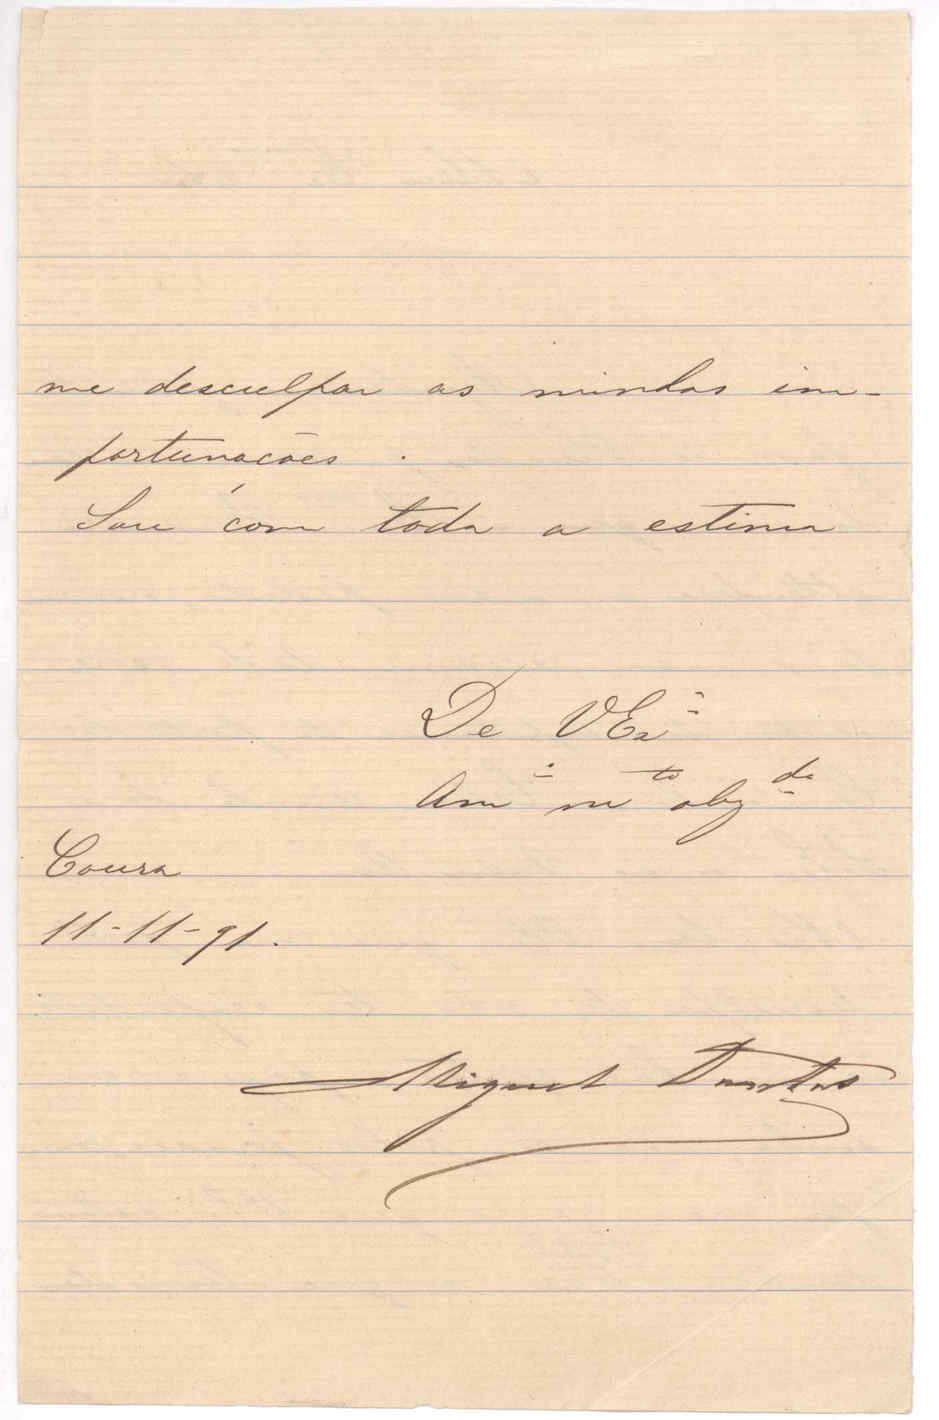 me desculpar as minhas im-
portunações.
Sou com toda a estima
De V Exª
Amº mto obgdo
Coura
11-11-91.
Miguel Dantas